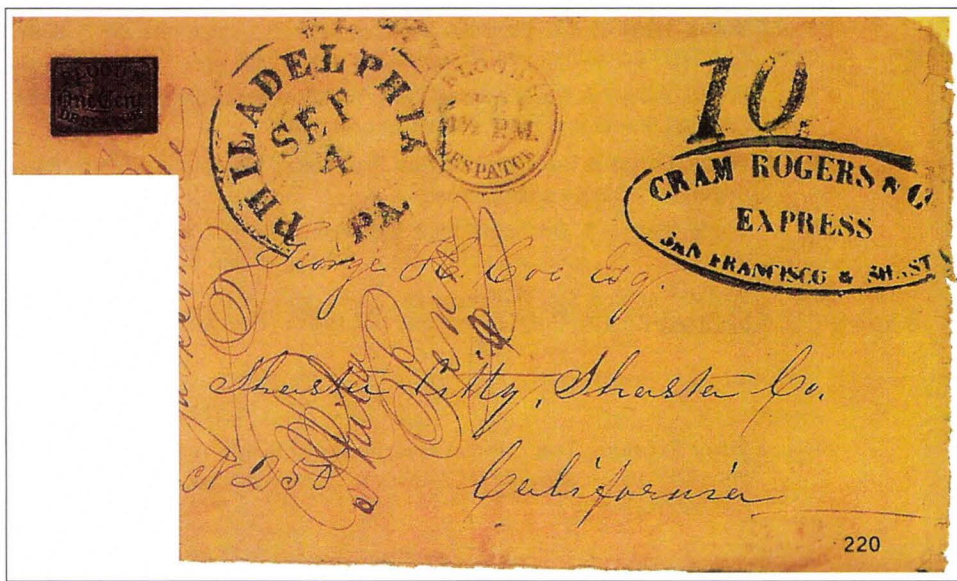 BLOOD'S
One Cent
DESPATCH
PHILADELPHIA
SEP
4
PA.
BLOOD'S
SEP
4½ P.M.
DESPATCH
10
CRAM ROGERS & C
EXPRESS
SAN FRANCISCO & SHAST
George H. Coe Esq.
Shasta Citty, Shasta Co.
California
Phila
Penna
N 250
220